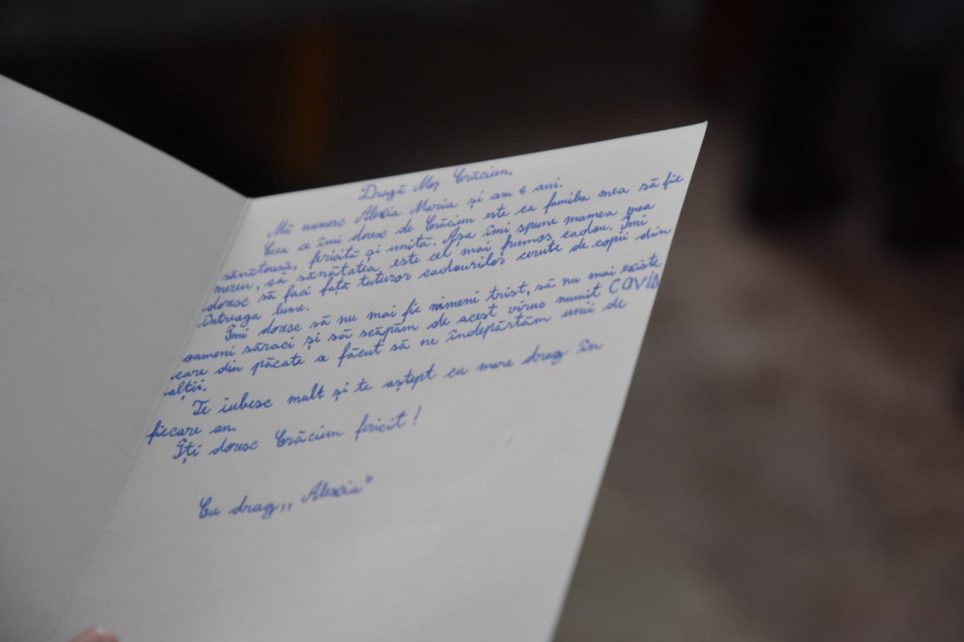 Dragă Moș Crăciun,
Mă numesc Alexia Maria și am 8 ani.
Ceea ce îmi doresc de Crăciun este ca familia mea să fie
sănătoasă, fericită și unită. Așa îmi spune mamea mea
mereu, că sănătatea este cel mai frumos cadou. Îmi
doresc să faci față tuturor cadourilor cerute de copii din
întreaga lume.
Îmi doresc să nu mai fie nimeni trist, să nu mai existe
oameni săraci și să scăpăm de acest virus numit COVID
care din păcate a făcut să ne îndepărtăm unii de
alții.
Te iubesc mult și te aștept cu mare drag în
fiecare an.
Îți doresc Crăciun fericit!
Cu drag,, Alexia"